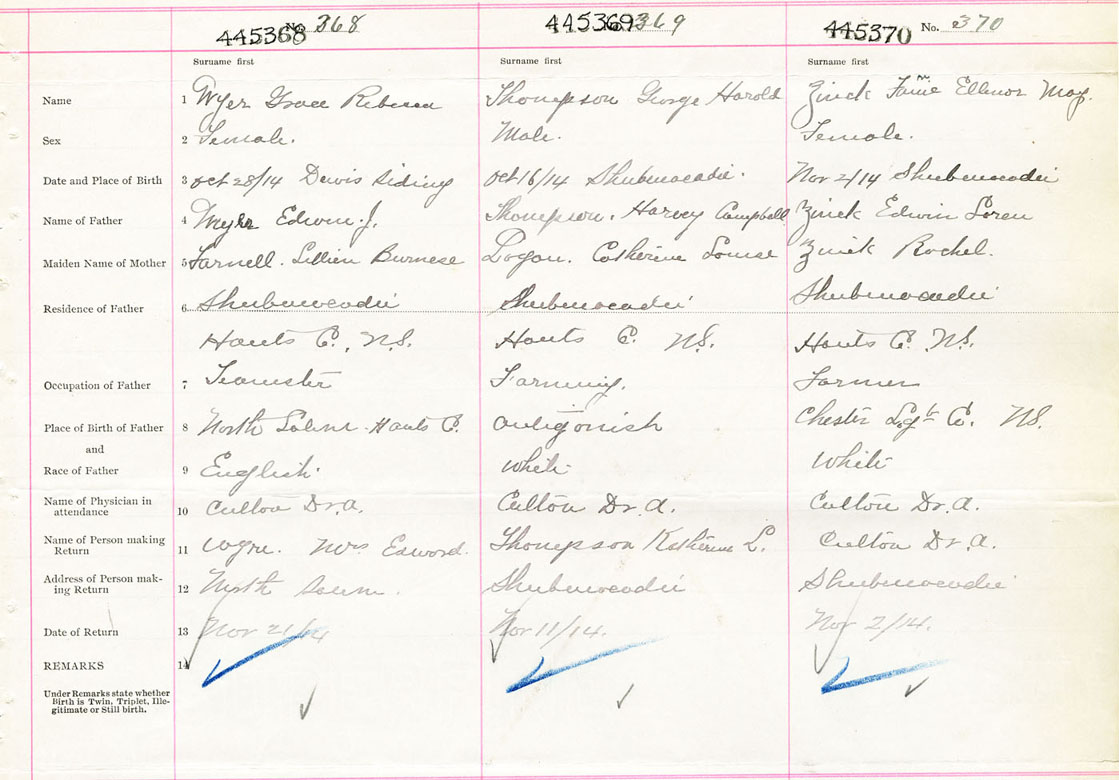 445368 No. 368 445369 369 445370 No. 370
Surname first Surname first Surname first
Name 1 Wyer Grace Rebecca Thompson George Harold Zinck Ellenor May.
Sex 2 Female. Male. Female.
Date and Place of Birth 3 Oct 28/14 Dewis Siding Oct 16/14 Shubenacadie. Nov 2/14 Shubenacadie
Name of Father 4 Edwin J. Thompson. Harvey Campbell Zinck Edwin Loren
Maiden Name of Mother 5 Farnell. Lillien Burnese Logan. Catherine Louise Zinck Rachel.
Residence of Father 6 Shubenacadie Shubenacadie Shubenacadie
Hants C. N.S. Hants C. N.S. Hants C. N.S.
Occupation of Father 7 Teamster Farming. Farmer
Place of Birth of Father 8 North Salem Hants C. Antigonish Chester C. NS.
and
Race of Father 9 English. White White
Name of Physician in
attendance 10 Culton Dr. A. Culton Dr. A. Culton Dr. A.
Name of Person making
Return 11 Mrs Edward. Thompson Katherine L. Culton Dr. A.
Address of Person mak-
ing Return 12 North Salem. Shubenacadie Shubenacadie
Date of Return 13 Nov 21/14 Nov 11/14. Nov 2/14.
REMARKS 14
Under Remarks state whether
Birth is Twin, Triplet, Ille-
gitimate or Still birth.